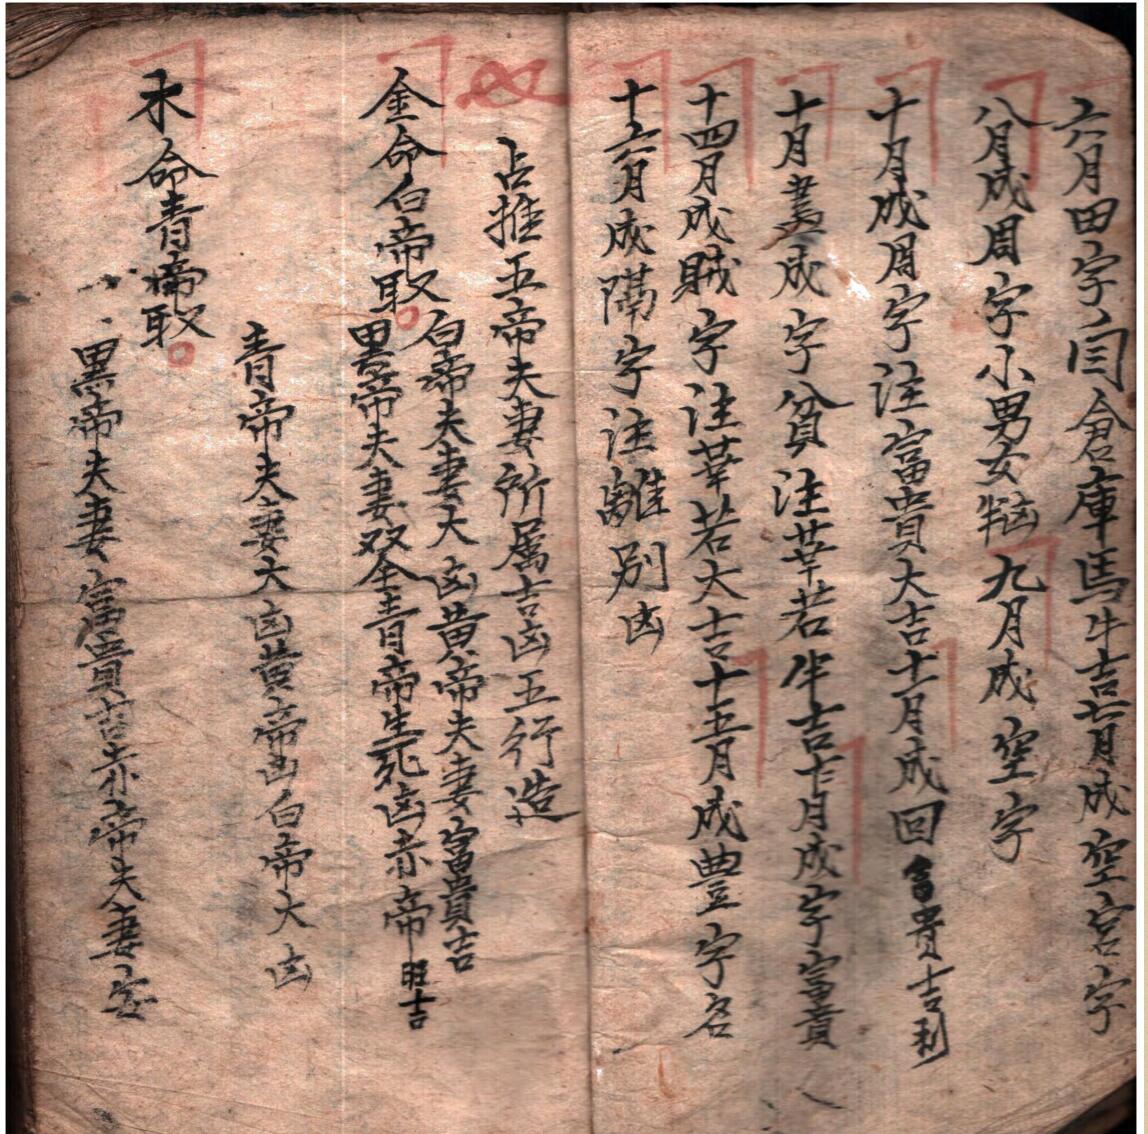 六月田字闫倉庫馬牛吉七月成空宮字
八月成周字小男女 九月成空字
十月成周字注富貴大吉十一月成回富貴吉利
十月 成字貧注莘若半吉十月成字富貴
十四月成賊字注莘若大吉十五月成豊字名
十六月成隔字注離別凶
占推五帝夫妻所属吉凶五行造
金命白帝取
白帝夫妻大凶黄帝夫妻富貴吉
黑帝夫妻双全青帝生死凶赤帝旺吉
木命青帝取
青帝夫妻大凶黄帝凶白帝大凶
黑帝夫妻富貴吉赤帝夫妻